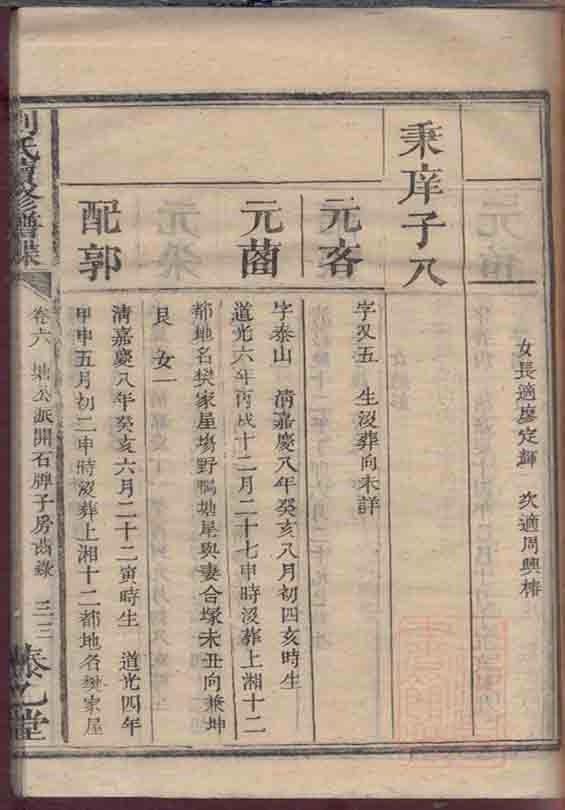 女長適廖定輝　次適周興椿
秉庠子八
元客
字又五　生沒葬向未詳
元菑
字泰山　清嘉慶八年癸亥八月初四亥時生
道光六年丙戌十二月二十七申時沒葬上湘十二
都地名樊家屋塲野鴨塘尾與妻合塚未丑向兼坤
艮　女一
配郭
清嘉慶八年癸亥六月二十二寅時生　道光四年
甲申五月初二申時沒葬上湘十二都地名樊家屋
劉氏續修譜牒
卷六　公派開石牌子房齒錄　三三
藜乙堂